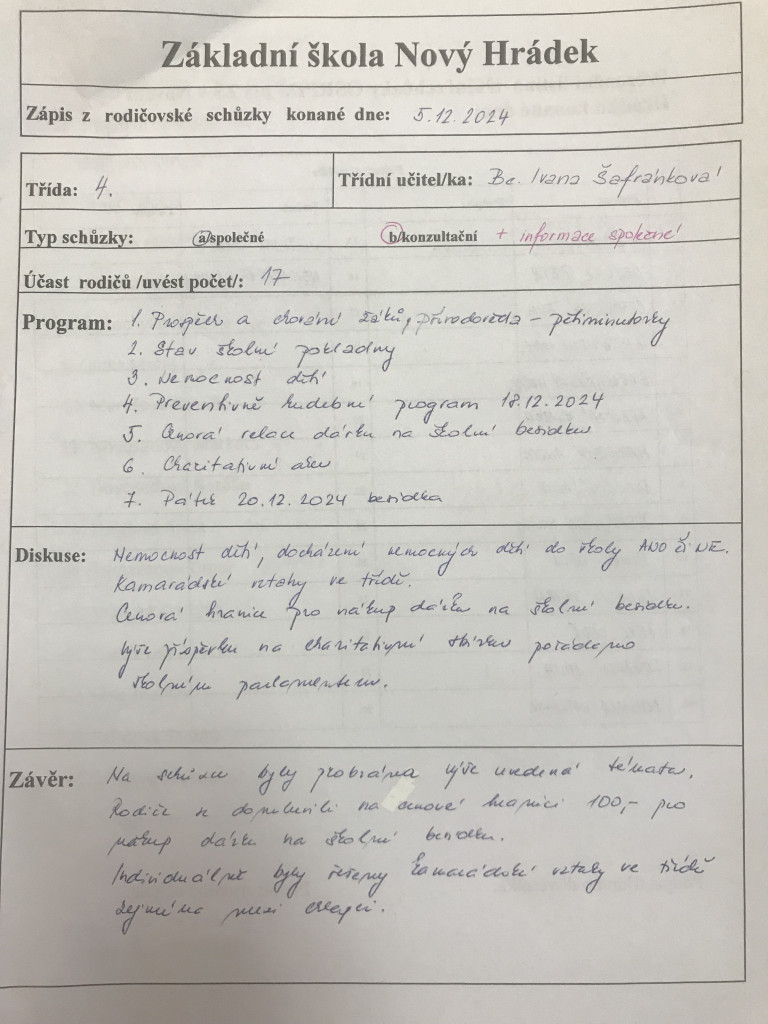 Základní škola Nový Hrádek
Zápis z rodičovské schůzky konané dne: 5.12.2024
Třída: 4. Třídní učitel/ka: Bc. Ivana Šafránková
Typ schůzky: a/společné b/konzultační + informace společné
Účast rodičů /uvést počet/: 17
Program: 1. Prospěch a chování žáků, přírodověda - pětiminutovky
2. Stav školní pokladny
3. Nemocnost dětí
4. Preventivně hudební program 18.12.2024
5. Cenová relace dárku na školní besídku
6. Charitativní akce
7. Pátek 20.12.2024 besídka
Diskuse: Nemocnost dětí, docházení nemocných dětí do školy ANO či NE.
Kamarádské vztahy ve třídě.
Cenová hranice pro nákup dárku na školní besídku.
Výše příspěvku na charitativní sbírku pořádanou
školním parlamentem.
Závěr: Na schůzce byly probrána výše uvedená témata.
Rodiče se domluvili na cenové hranici 100,- pro
nákup dárku na školní besídku.
Individuálně byly řešeny kamarádské vztahy ve třídě
zejména mezi chlapci.